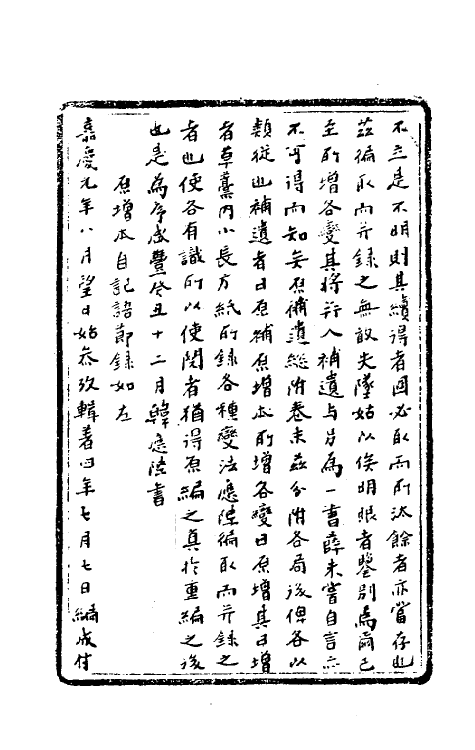 不立是不明則其續得者固必取而所汰餘者亦當存也
茲徧取而并錄之無敢失墜姑以俟明眼者鑒别焉爾已
至所增各變其將并入補遺与當為一書薛未嘗自言亦
不可得而知矣原補遺總附卷末茲分附各局後俾各以
類從也補遺者曰原補原增本所增各變曰原增其曰增
者草藁內小長方紙所錄各種變法應陛徧取而并錄之
者也使各有識所以使閱者猶得原編之真於重編之後
也是為序咸豐癸丑十二月韓應陛書
原增本自記語節錄如左
嘉慶元年八月望日始叅攷輯著四年七月七日編成付